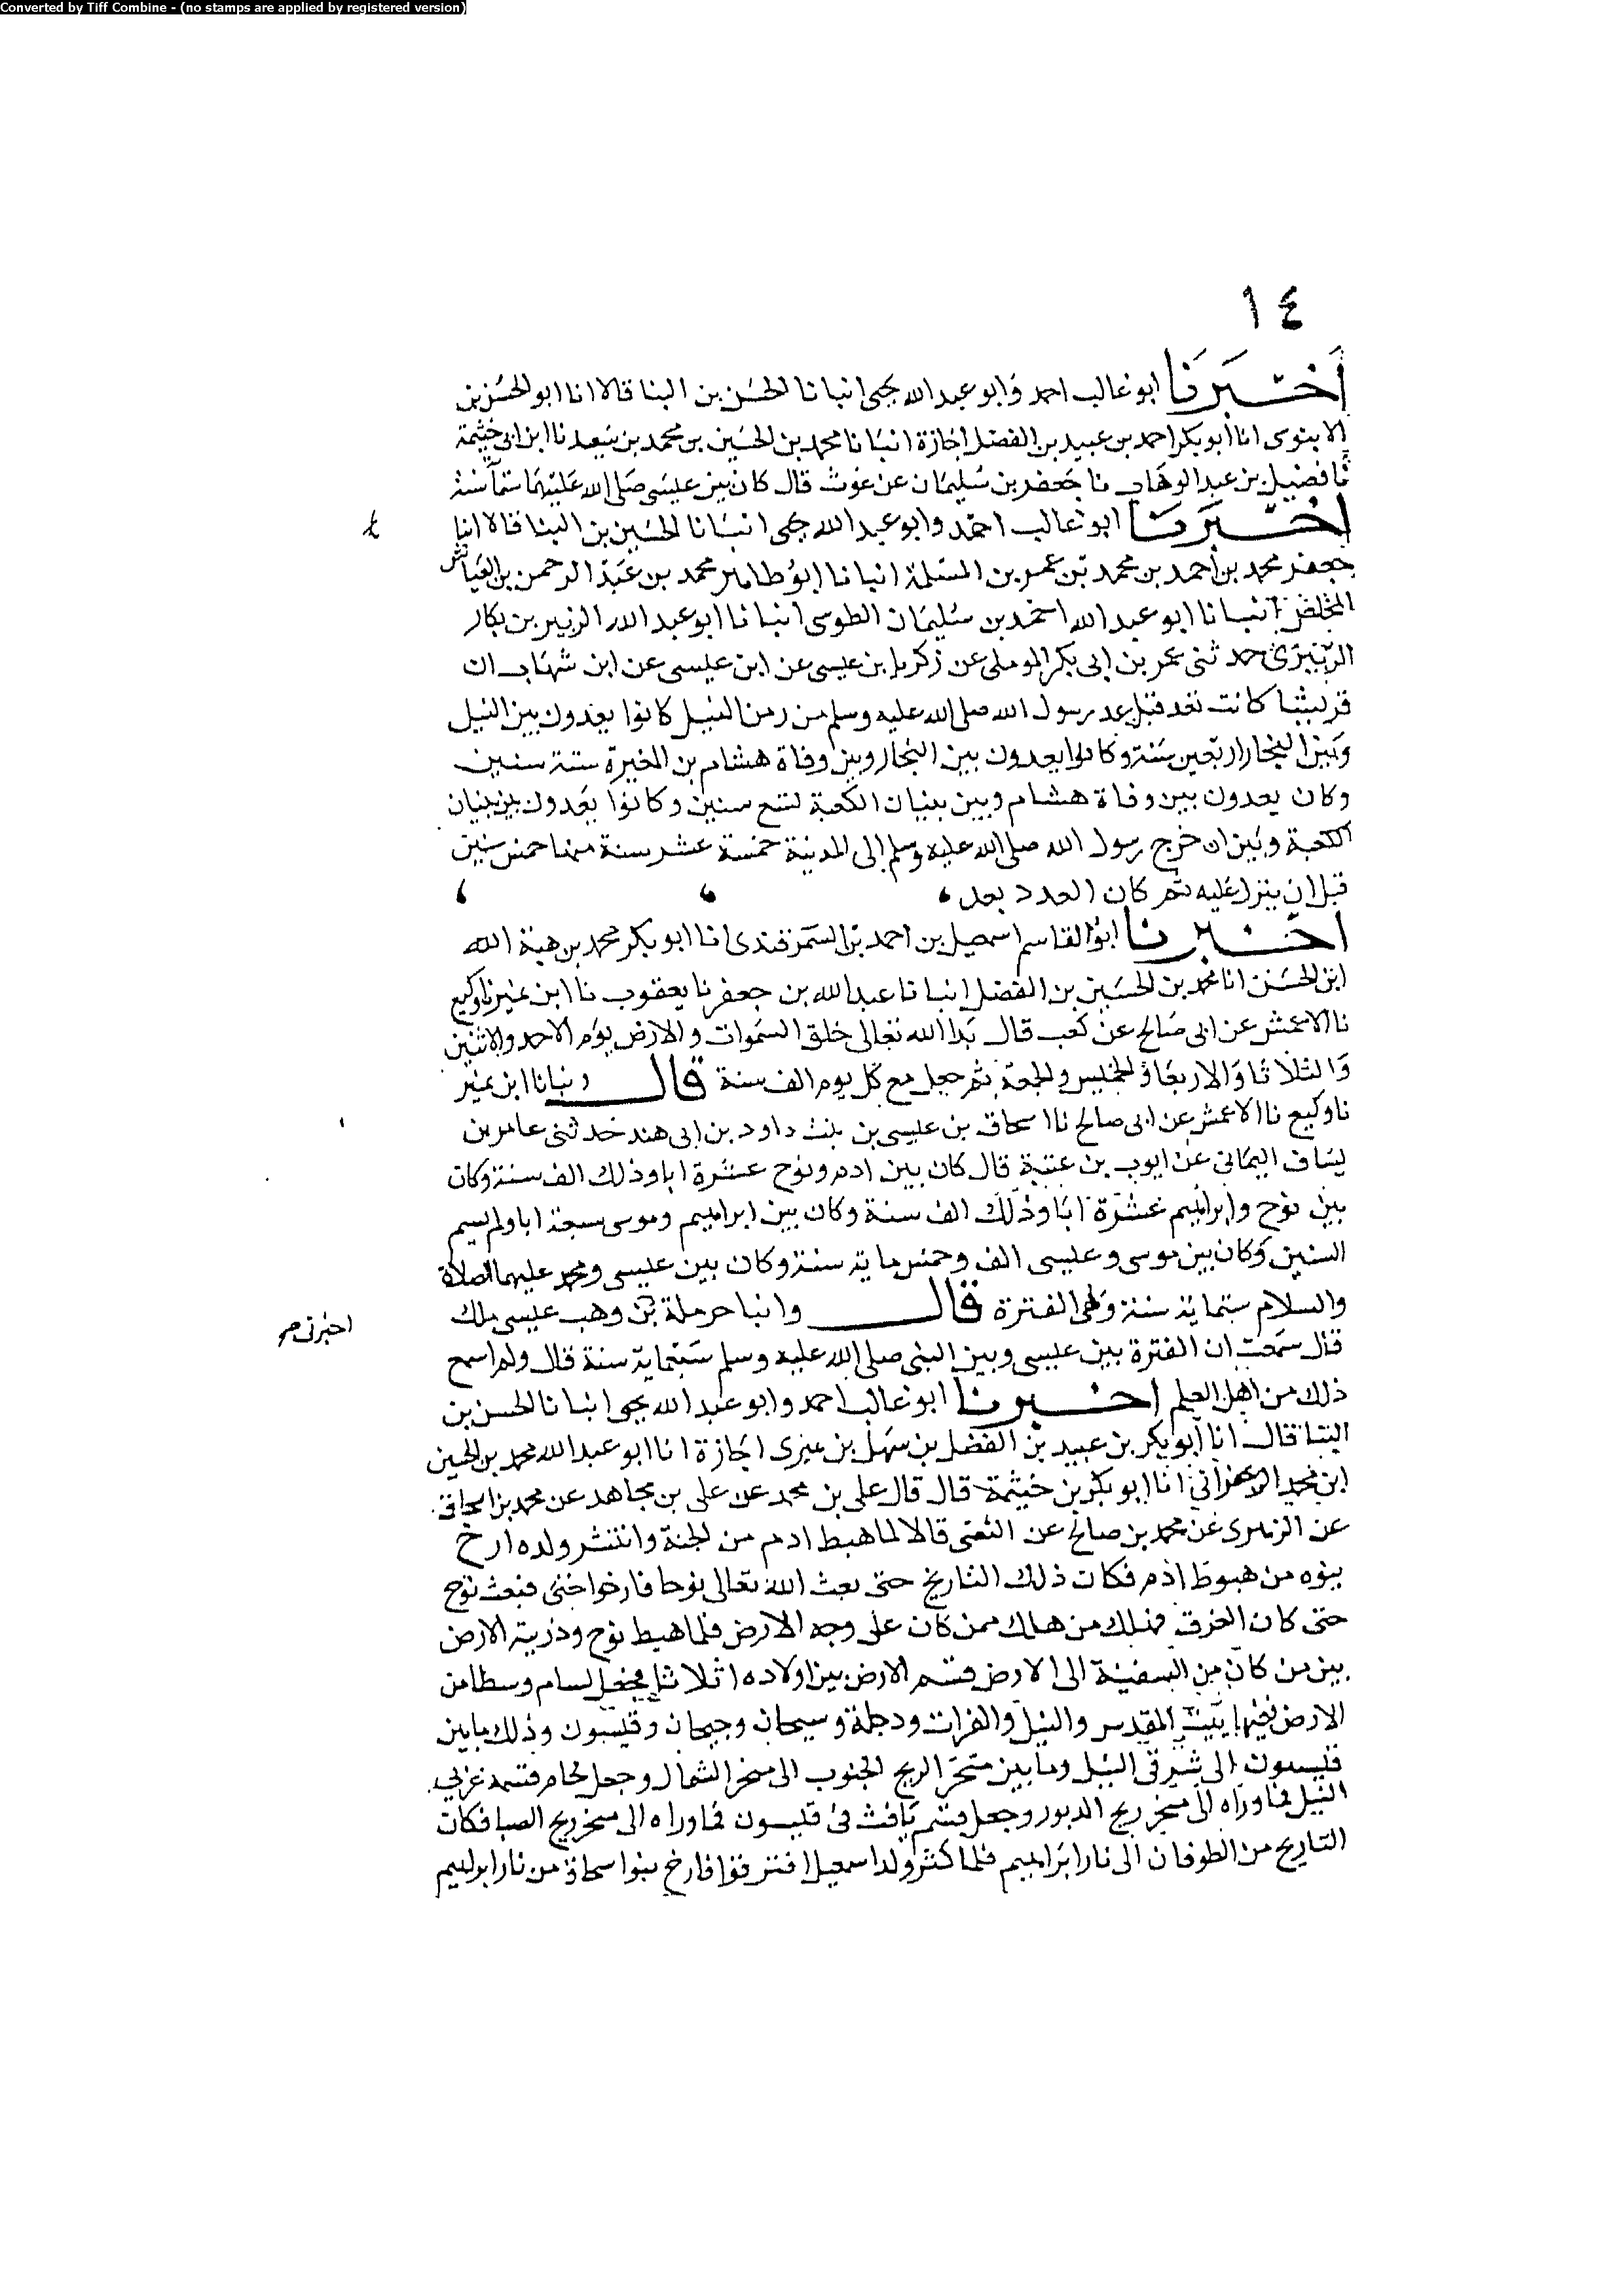 Converted by Tiff Combine - (no stamps are applied by registered version)
١٤
اخبرنا ابو غالب احمد وابو عبد الله يحيى انبانا الحسن بن البنا قالا انا ابو الحسن بن
الابنوسى انا ابو بكر احمد بن عبيد بن الفضل اجازة انبانا محمد بن الحسين بن محمد بن سعيد نا ابن ابى خيثمة
نا فضيل بن عبد الوهاب نا جعفر بن سليمان عن عوف قال كان بين عيسى صلى الله عليهما ستمأ سنة
اخبرنا ابو غالب احمد وابو عبد الله يحيى انبانا الحسين بن البنا قالا انبا
جعفر محمد بن أحمد بن محمد بن عمر بن المسلمة انبانا ابو طاهر محمد بن عبد الرحمن بن العباس
المخلص انبانا ابو عبد الله احمد بن سليمان الطوسى انبانا ابو عبد الله الزبير بن بكار
الزبيرى حدثنى عمر بن ابى بكر الموملى عن زكريا بن عيسى عن ابن عيسى عن ابن شهاب ان
قريشا كانت تعد قبل عد رسول الله صلى الله عليه وسلم من زمن الفيل كانوا يعدون بين الفيل
وبين الفجار اربعين سنة وكانوا يعدون بين الفجار وبين وفاة هشام بن المغيرة ستة سنين
وكان يعدون بين وفاة هشام وبين بنيان الكعبة تسع سنين وكانوا يعدون بين بنيان
الكعبة وبين ان خرج رسول الله صلى الله عليه وسلم الى المدينة خمسة عشر سنة منها خمس سنين
قبل ان ينزل عليه ثم كان العدد بعد
اخبرنا ابو القاسم اسمعيل بن احمد بن السمرقندى انا ابو بكر محمد بن هبة الله
ابن الحسن انا محمد بن الحسين بن الفضل انبانا عبد الله بن جعفر نا يعقوب نا ابن نمير نا وكيع
نا الاعمش عن ابى صالح عن كعب قال بدا الله تعالى خلق السموات والارض يوم الاحد والاثنين
والثلاثا والاربعا والخميس والجمعة ثم جعل مع كل يوم الف سنة قال ونبانا ابن نمير
نا وكيع نا الاعمش عن ابى صالح نا اسحاق بن عيسى بن بنت داود بن ابى هند حدثنى عامر بن
يساف اليمانى عن ايوب بن عتبة قال كان بين ادم ونوح عشرة ابا وذلك الف سنة وكان
بين نوح وابراهيم عشرة ابا وذلك الف سنة وكان بين ابراهيم وموسى سبعة ابا ولم يسم
السنين وكان بين موسى وعيسى الف وخمس ماية سنة وكان بين عيسى ومحمد عليهما الصلاة
والسلام ستماية سنة وهى الفترة قال وانبا حرملة بن وهب عيسى ملك
اخبرنى صح
قال سمعت ان الفترة بين عيسى وبين النبى صلى الله عليه وسلم ستماية سنة قال ولم اسمع
ذلك من اهل العلم اخبرنا ابو غالب احمد وابو عبد الله يحيى انبانا الحسن بن
البنا قال انا ابو بكر بن عبيد بن الفضل بن سهل بن بيرى اجازة انا ابو عبد الله محمد بن الحسين
ابن محمد الزعفرانى انا ابو بكر بن خيثمة قال قال على بن محمد عن على بن مجاهد عن محمد بن اسحاق
عن الزهرى عن محمد بن صالح عن الشعبى قالا لما هبط ادم من الجنة وانتشر ولده ارخ
بنوه من هبوط ادم فكان ذلك التاريخ حتى بعث الله تعالى نوحا فارخوا حتى مبعث نوح
حتى كان الغرق فهلك من هلك ممن كان على وجه الارض فلما هبط نوح وذريته الارض
بين من كان من السفينة الى الارض قسم الارض بين اولاده اثلاثا فجعل لسام وسطا من
الارض ففيها بيت المقدس والنيل والفرات ودجلة وسيحان وجيحان وفيسون وذلك ما بين
فيسون الى شرقى النيل وما بين منخر الريح الجنوب الى منخر الشمال وجعل لحام قسمه غربى
النيل فما وراه الى منخر ريح الدبور وجعل قسم يافث فى فيسون فما وراه الى منخر ريح الصبا فكان
التاريخ من الطوفان الى نار ابراهيم فلما كثر ولد اسمعيل افترقوا فارخ بنوا اسحاق من نار ابراهيم